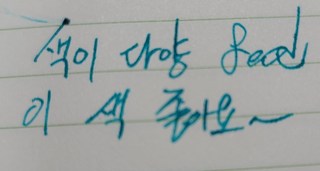 색이 다양
이 색 좋아요~